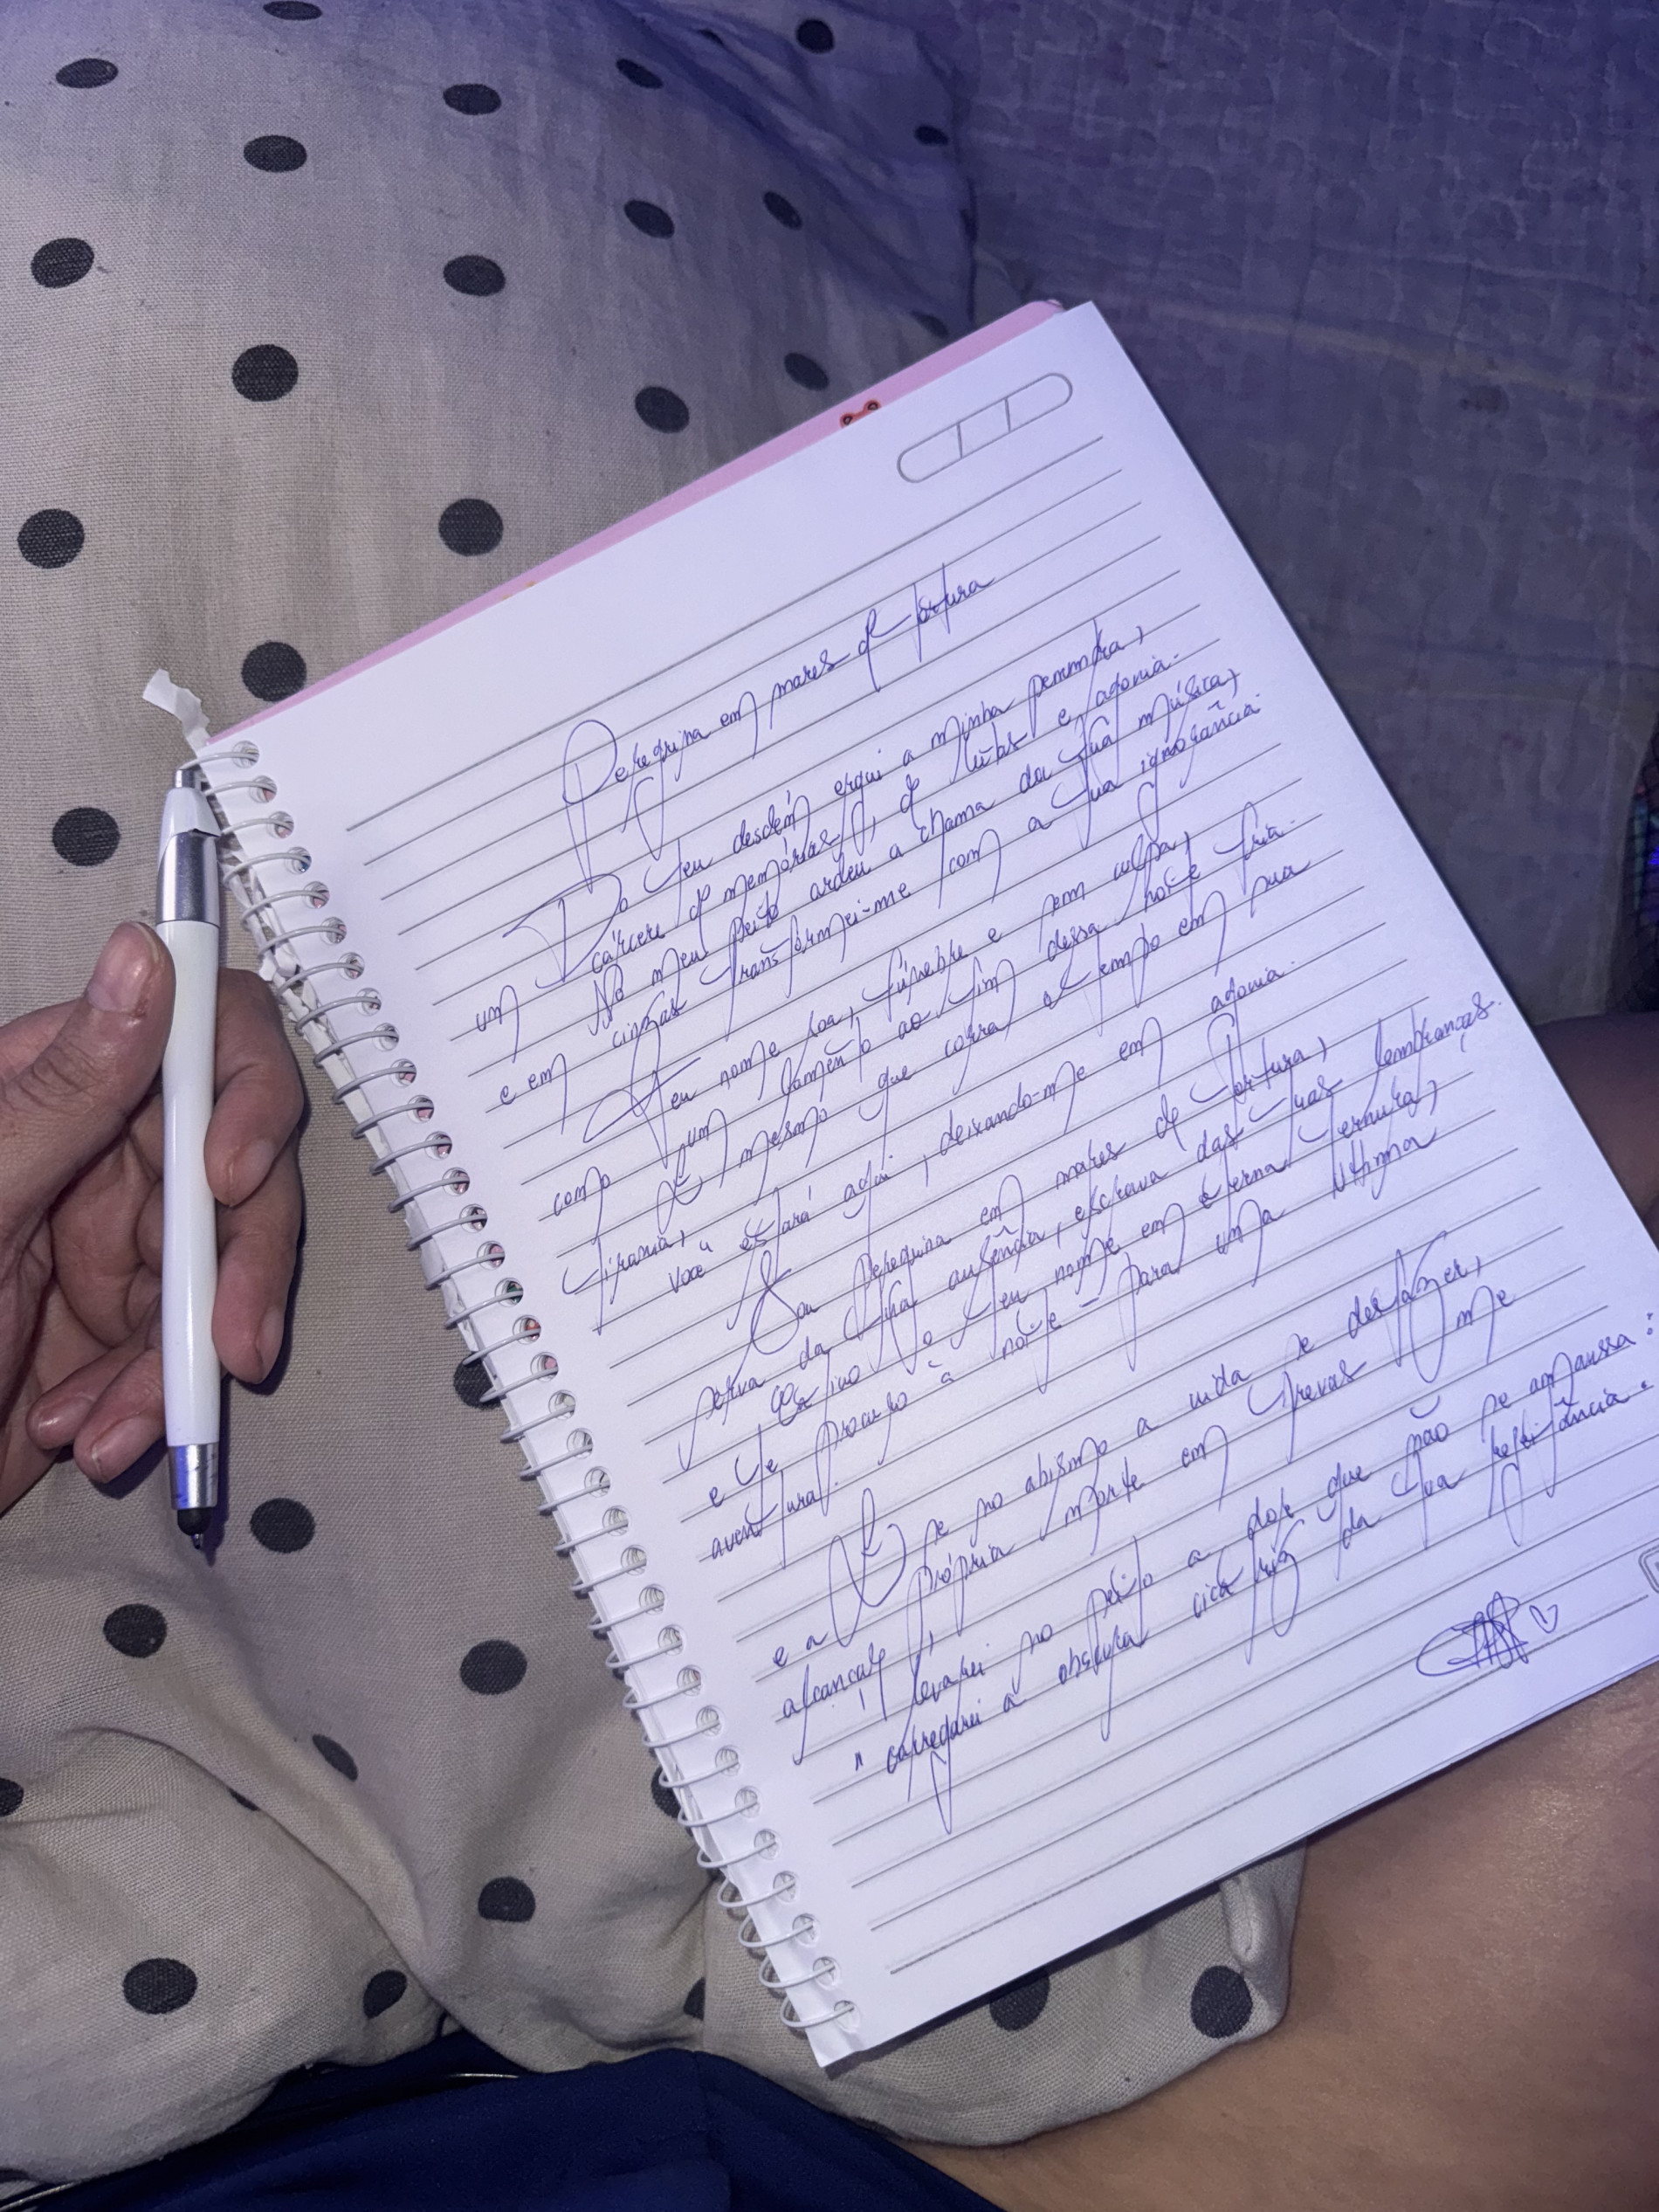 Peregrina em mares de tortura
Do teu desdém ergui a minha penumbra,
um cárcere de memórias, de lutas e agonia.
No meu peito ardeu a chama da tua música,
e em cinzas transformei-me com a tua ignorância
Teu nome soa, fúnebre e sem culpa,
como um lamento ao fim dessa noite fria.
E mesmo que corra o tempo em sua
tirania,
você estará aqui, deixando-me em agonia.
Sou peregrina em mares de tortura,
serva da tua ausência, escrava das tuas lembranças.
Cativo o teu nome em eterna ternura,
e te procuro à noite - para uma última
aventura.
E se no abismo a vida se desfázer,
e a própria morte em trevas me
alcançar,
levarei no peito a dor que não se amansa:
" carregarei a obscura cicatriz da tua